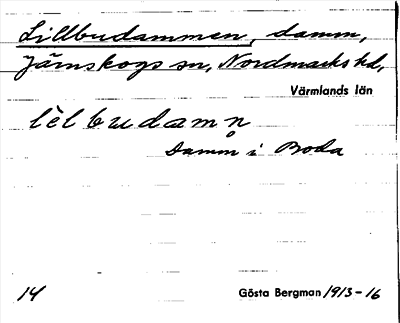 Lillbudammen, damm,
Järnskogs sn, Nordmarks hd,
Värmlands län
lèlbudamn̥
Damm i Boda
14 Gösta Bergman 1913-16